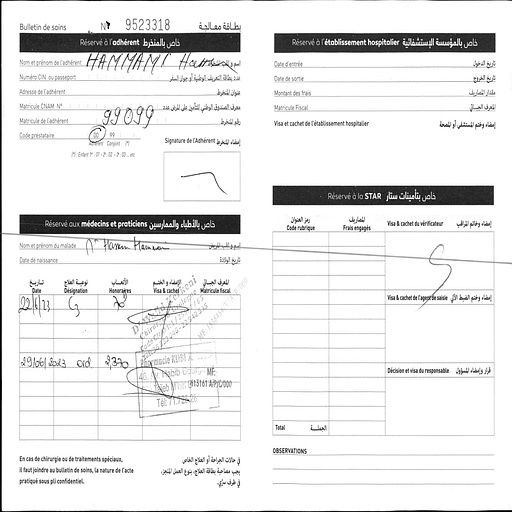 Bulletin de soins N° 9523318 بطاقة معالجة
Réservé à l'adhérent خاص بالمنخرط
Nom et prénom de l'adhérent HAMMAMI
Numéro CIN ou passeport عدد بطاقة التعريف الوطنية أو جواز السفر
Adresse de l'adhérent عنوان المنخرط
Matricule CNAM N° معرف الصندوق الوطني للتأمين على المرض عدد
Matricule de l'adhérent 99099 رقم المنخرط
Code prestataire 00 99
Adhérent Conjoint (*)
(*) : Enfant 1 - 01 - 2 - 02 - 3 - 03 ... etc
Signature de l'Adhérent إمضاء المنخرط
Réservé aux médecins et praticiens خاص بالأطباء والممارسين
Nom et prénom du malade اسم و لقب المريض
Date de naissance تاريخ الولادة
تاريخ نوعية العلاج الأتعاب الإمضاء و الختم المعرف الجبائي
Date Désignation Honoraires Visa & cachet Matricule fiscal
22/6/23 C3 70
29/06/2023 2,370
MF:
En cas de chirurgie ou de traitements spéciaux,
il faut joindre au bulletin de soins, la nature de l'acte
pratiqué sous pli confidentiel.
في حالات الجراحة أو العلاج الخاص
يجب مصاحبة بطاقة العلاج، بنوع العمل المنجز،
في ظرف سري.
Réservé à l'établissement hospitalier خاص بالمؤسسة الإستشفائية
Date d'entrée تاريخ الدخول
Date de sortie تاريخ الخروج
Montant des frais مقدار المصاريف
Matricule Fiscal المعرف الجبائي
Visa et cachet de l'établissement hospitalier إمضاء وختم المستشفى أو المصحة
Réservé à la STAR خاص بتأمينات ستار
رمز العنوان المصاريف
Code rubrique Frais engagés
Visa & cachet du vérificateur إمضاء وخاتم المراقب
Visa & cachet de l'agent de saisie إمضاء وختم الضبط الآلي
Décision et visa du responsable قرار وإمضاء المسؤول
Total الجملة
OBSERVATIONS